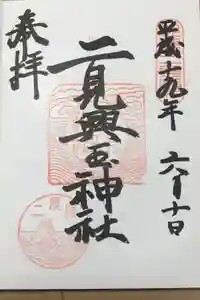 平成十九年 六月十日
二見興玉神社
奉拝